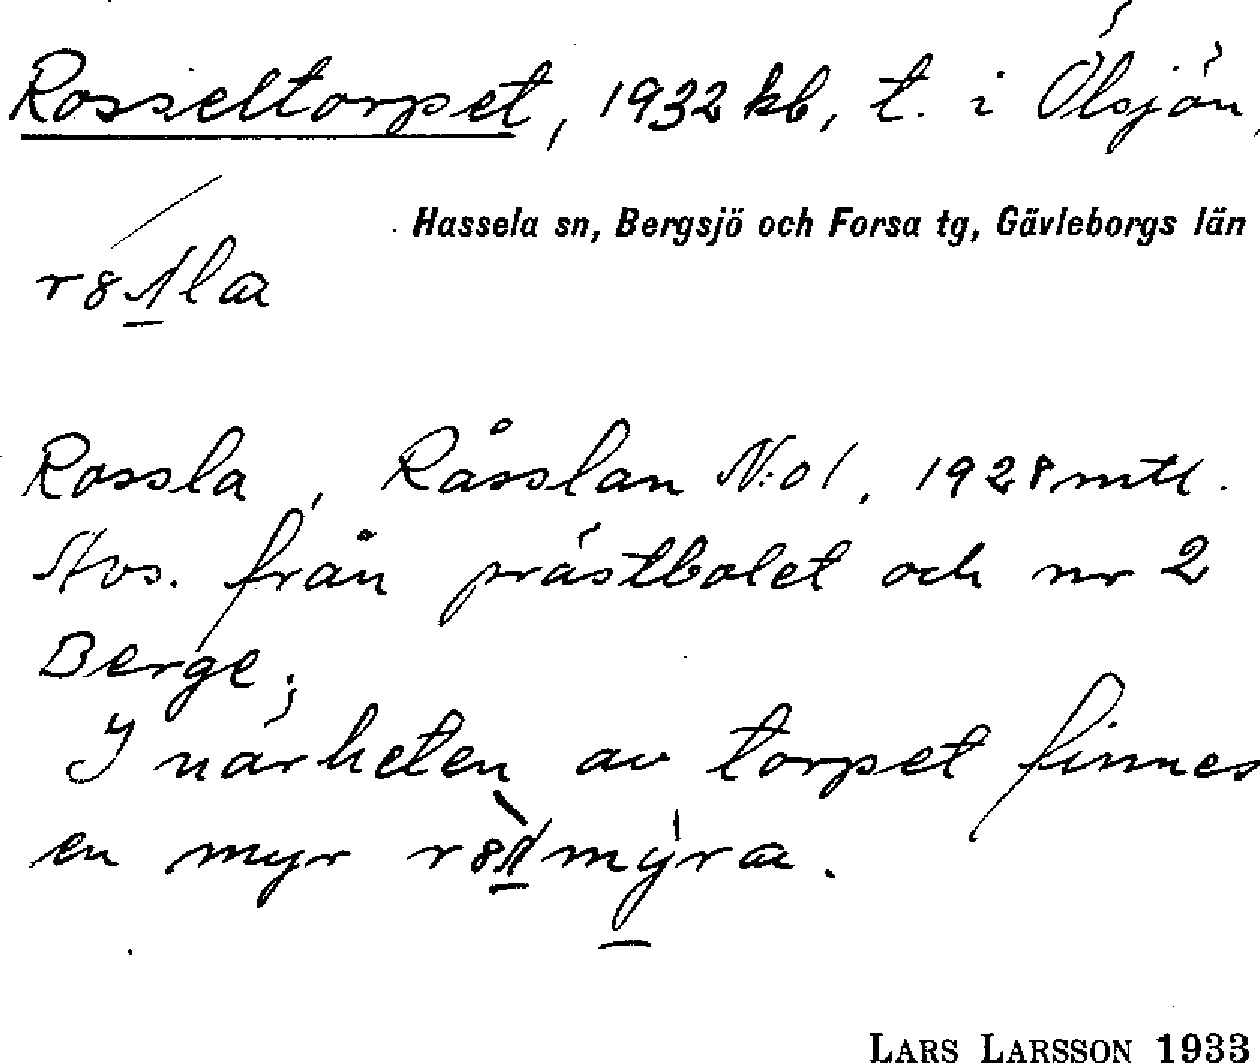 Rosseltorpet, 1932 kb, t. i Ölsjön,
Hassela sn, Bergsjö och Forsa tg, Gävleborgs län
Rossla, Råsslan N:o 1, 1928 mtl.
Avs. från prästbolet och nr 2
Berge;
I närheten av torpet finnes
en myr
LARS LARSSON 1933